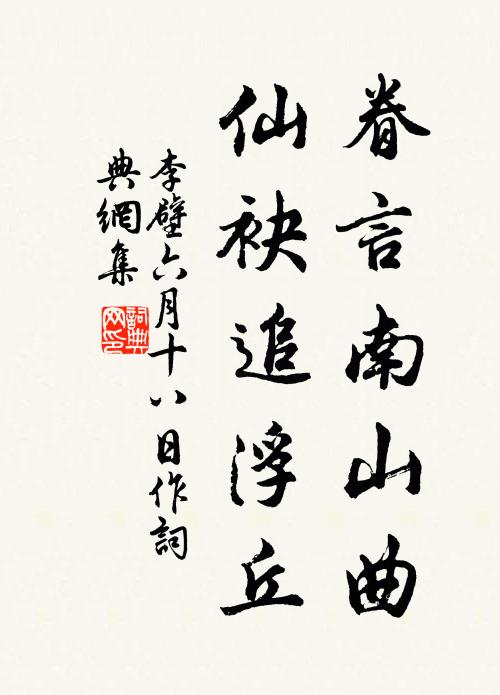 眷言南山曲
仙袂追浮丘
李壁六月十八日作詞
典網集
詞典
网印